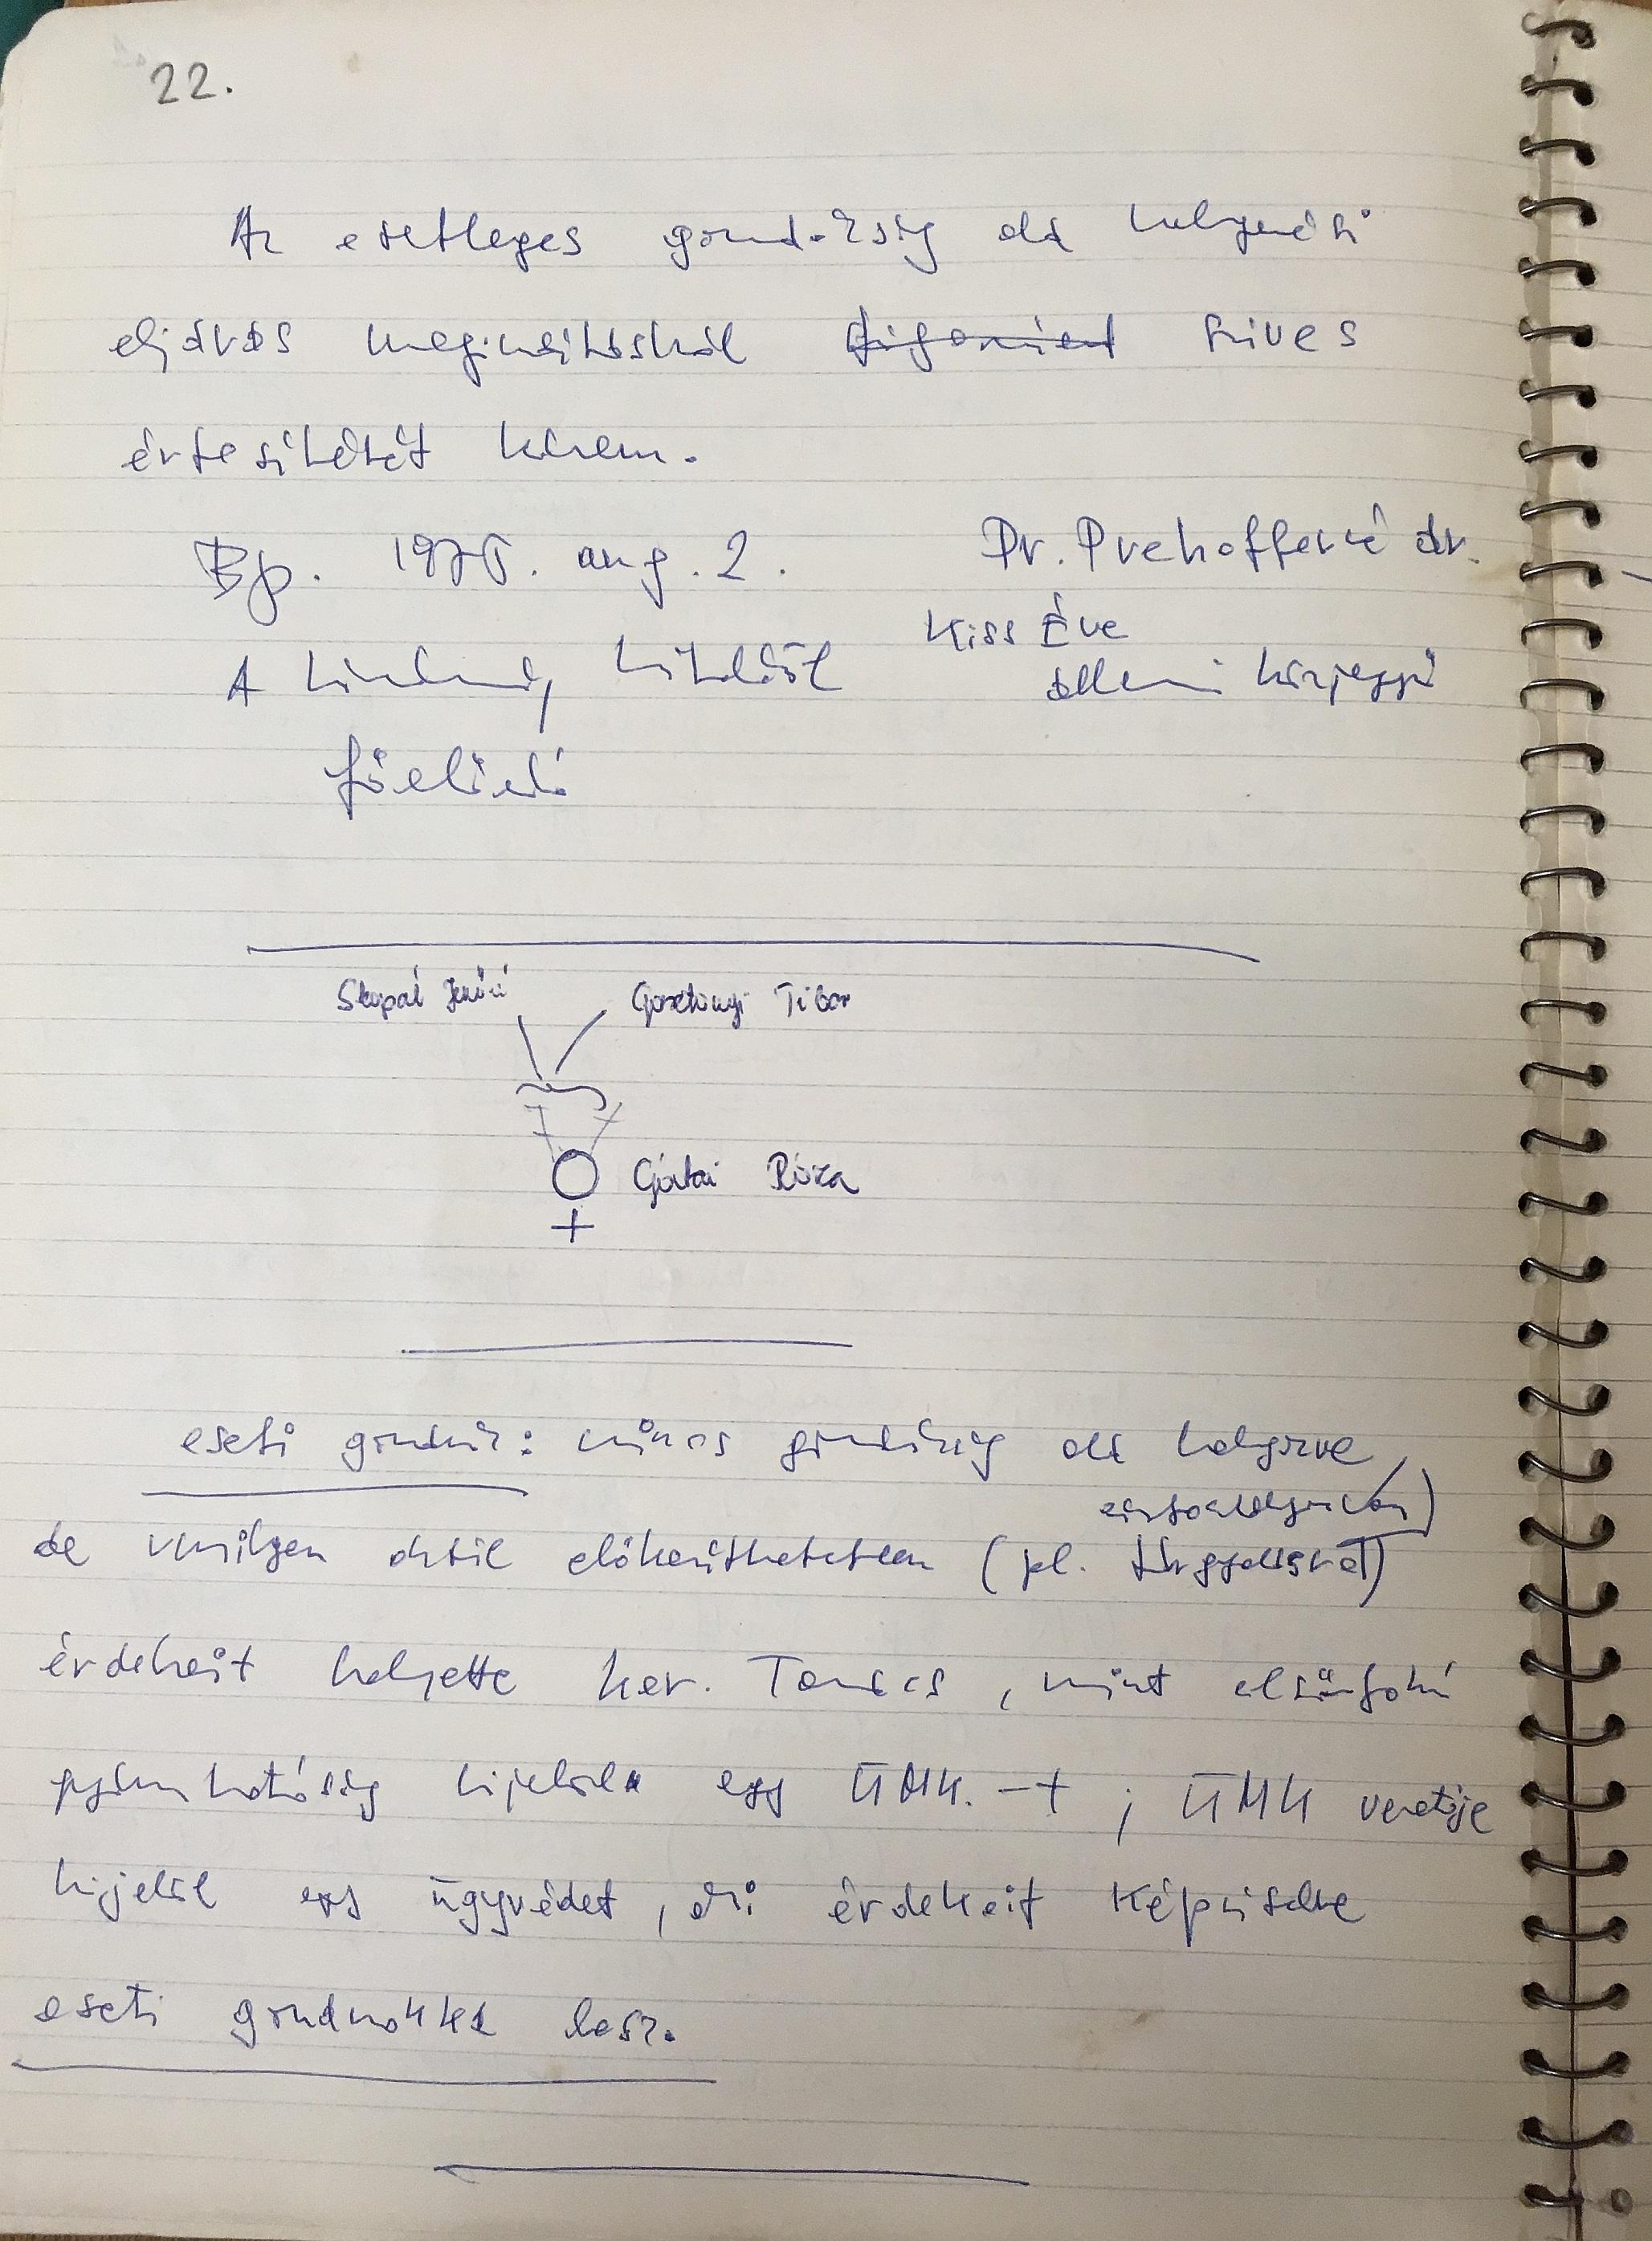 22.
Az esetleges gondnokság alá helyezési
eljárás megindításáról szíves
értesítését kérem.
Bp. 1975. aug. 2.
Dr. Prehofferné dr.
Kiss Éva
állami közjegyző
A kiadmány hiteléül
főelőadó
Tibor
Róza
eseti gondnok: nincs gondnokság alá helyezve,
de valamilyen okból előkeríthetetlen (pl.
érdekeit helyette ker. Tanács, mint elsőfokú
gyámhatóság kijelöl egy ÜMK.-t; ÜMK vezetője
kijelöl egy ügyvédet, aki érdekeit képviselve
eseti gondnokká lesz.